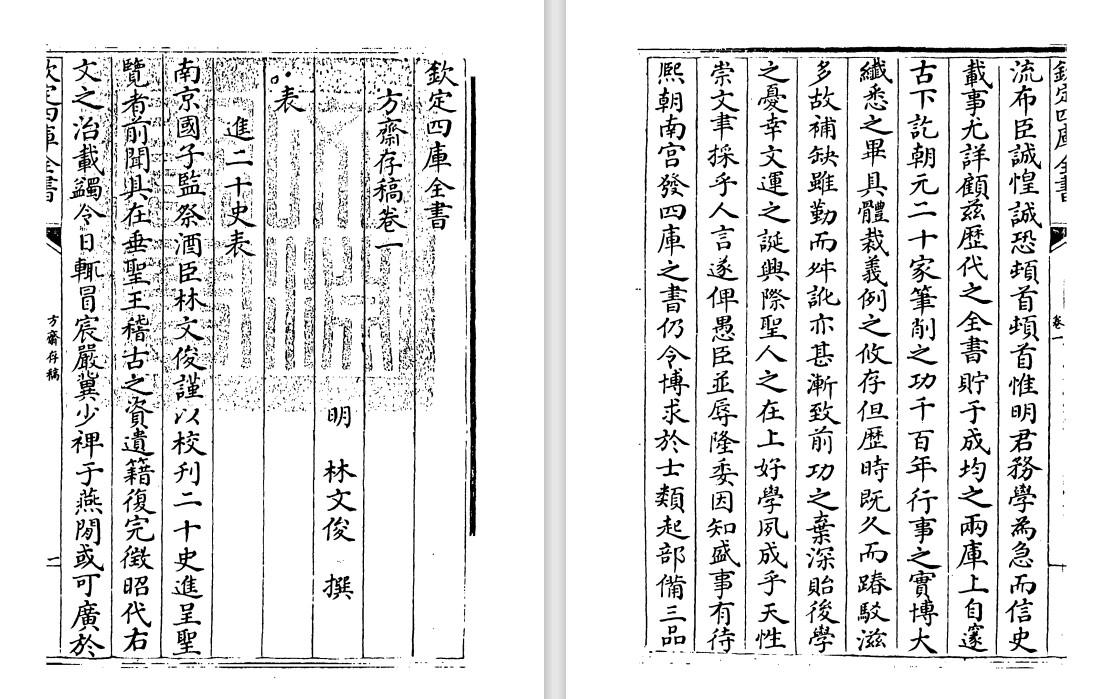 欽定四庫全書
方齋存稿卷一
明 林文俊 撰
表
進二十史表
南京國子監祭酒臣林文俊謹以校刊二十史進呈聖
覽者前聞具在垂聖王稽古之資遺籍復完徵昭代右
文之治載蠲令日輒冒宸嚴冀少裨于燕閒或可廣於
欽定四庫全書 方齋存稿
欽定四庫全書 卷一
流布臣誠惶誠恐頓首頓首惟明君務學為急而信史
載事尤詳顧兹歴代之全書貯于成均之兩庫上自邃
古下訖朝元二十家筆削之功千百年行事之實博大
纎悉之畢具體裁義例之攸存但歴時既久而踳駁滋
多故補缺雖勤而舛訛亦甚漸致前功之棄深貽後學
之憂幸文運之誕興際聖人之在上好學夙成乎天性
崇文聿採乎人言遂俾愚臣並辱隆委因知盛事有待
熈朝南宫發四庫之書仍令博求於士類起部備三品